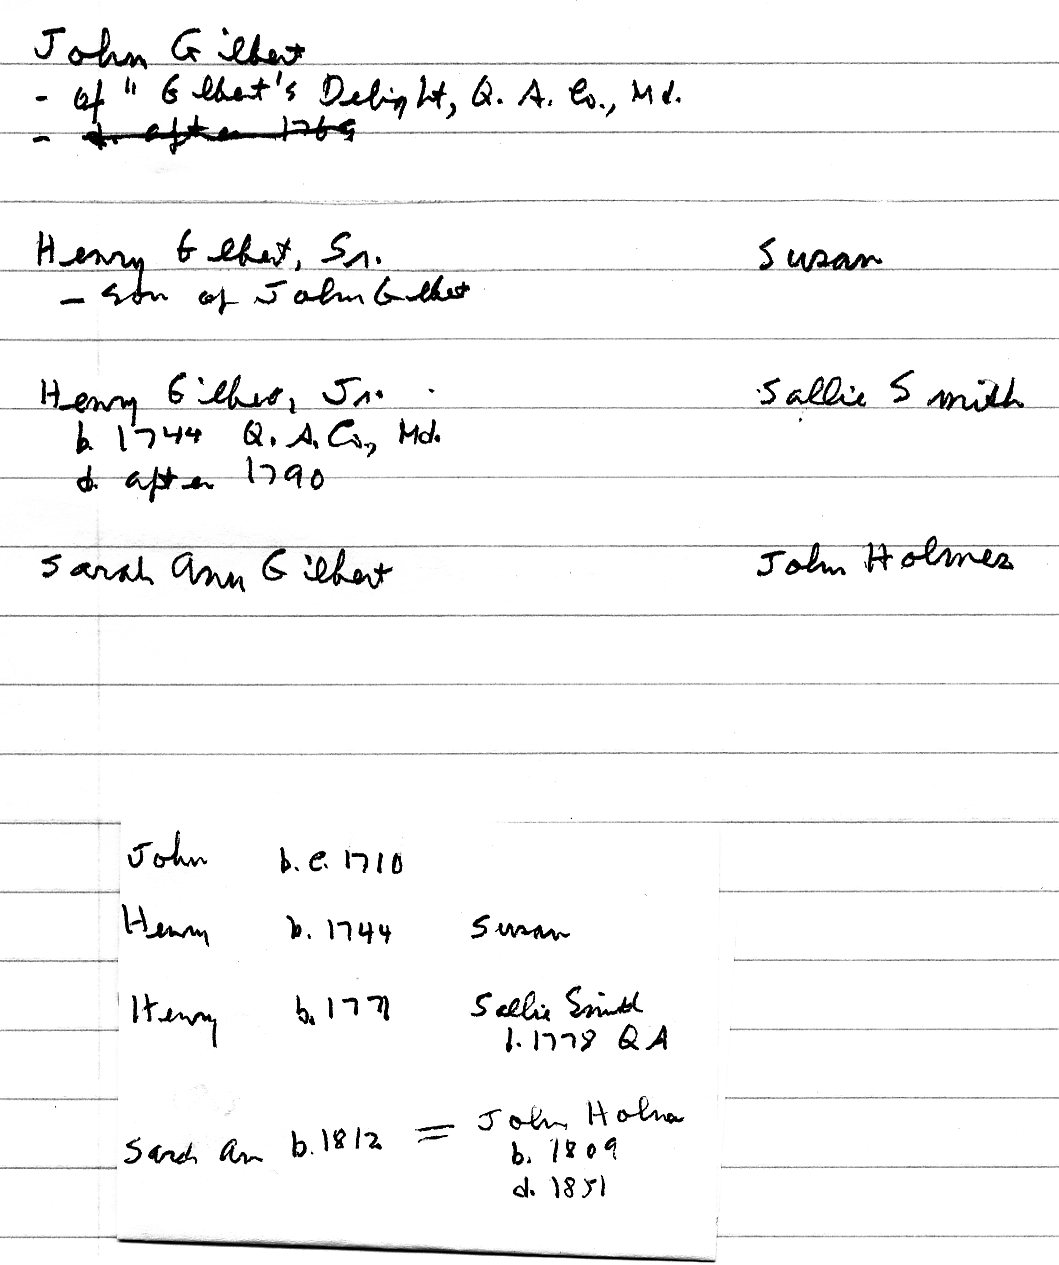 John Gilbert
- of "Gilbert's Delight, Q. A. Co., Md.
- d. after 1769
Henry Gilbert, Sr. Susan
- son of John Gilbert
Henry Gilbert, Jr. Sallie Smith
b. 1744 Q. A. Co., Md.
d. after 1790
Sarah Ann Gilbert John Holmes
John b. c. 1710
Henry b. 1744 Susan
Henry b. 1771 Sallie Smith
b. 1778 QA
Sarah Ann b. 1812 = John Holmes
b. 1809
d. 1851